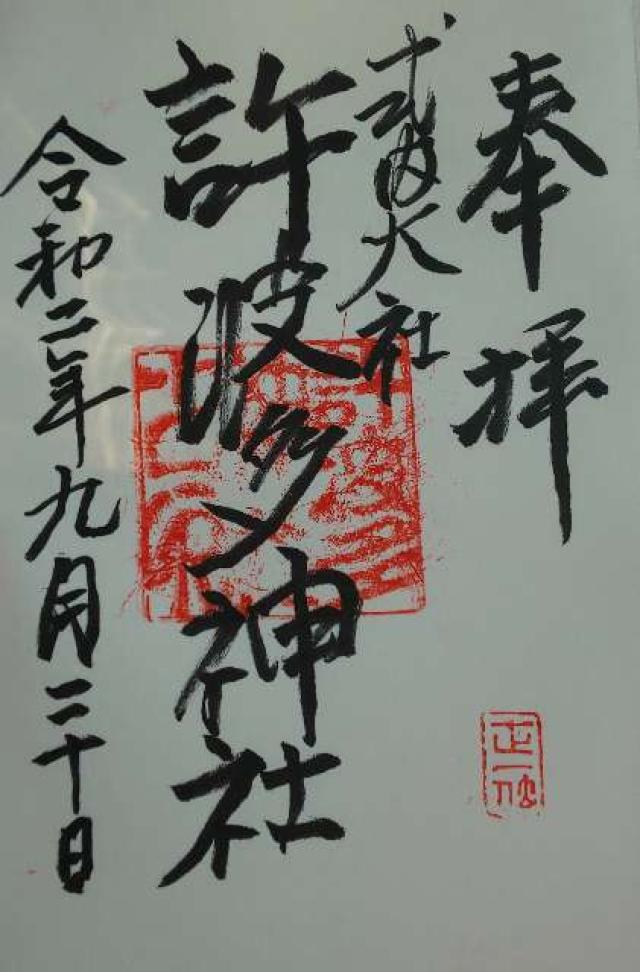 奉拝
式内大社
許波多神社
令和二年九月二十日
正一位